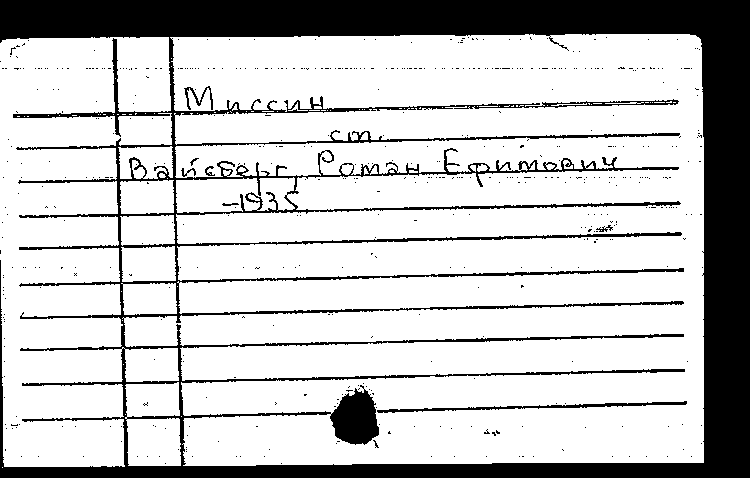 Миссин
ст.
Вайсберг, Роман Ефимович
-1935